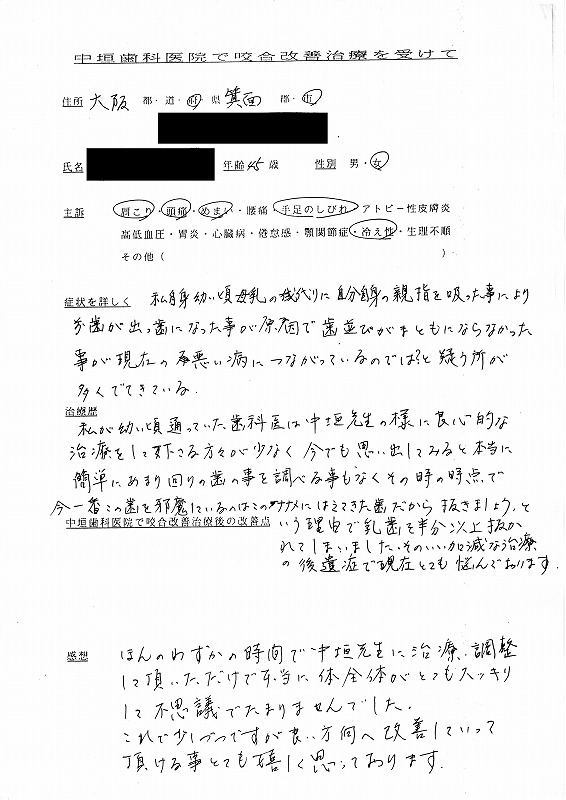 中垣歯科医院で咬合改善治療を受けて
住所 大阪 都・道・府・県 箕面 郡・市
氏名 年齢 45 歳 性別 男・女
主訴 肩こり・頭痛・めまい・腰痛・手足のしびれ・アトピー性皮膚炎
高低血圧・胃炎・心臓病・倦怠感・顎関節症・冷え性・生理不順
その他( )
症状を詳しく 私自身幼い頃母乳の代りに自分自身の親指を吸った事により
歯が出っ歯になった事が原因で歯並びがまともにならなかった
事が現在の悪い病につながっているのでは?と疑う所が
多くでてきている。
治療歴
私が幼い頃通っていた歯科医は中垣先生の様に良心的な
治療をして下さる方々が少なく今でも思い出してみると本当に
簡単にあまり回りの歯の事を調べる事もなくその時の時点で
今一番この歯を邪魔しているのはこのナナメにはえてきた歯だから抜きましょう。と
中垣歯科医院で咬合改善治療後の改善点
いう理由で乳歯を半分以上抜か
れてしまいました。そのいい加減な治療
の後遺症で現在とても悩んでおります。
感想 ほんのわずかの時間で中垣先生に治療、調整
して頂いただけで本当に体全体がとてもスッキリ
して不思議でたまりませんでした。
これで少しづつですが良い方向へ改善していって
頂ける事とても嬉しく思っております。